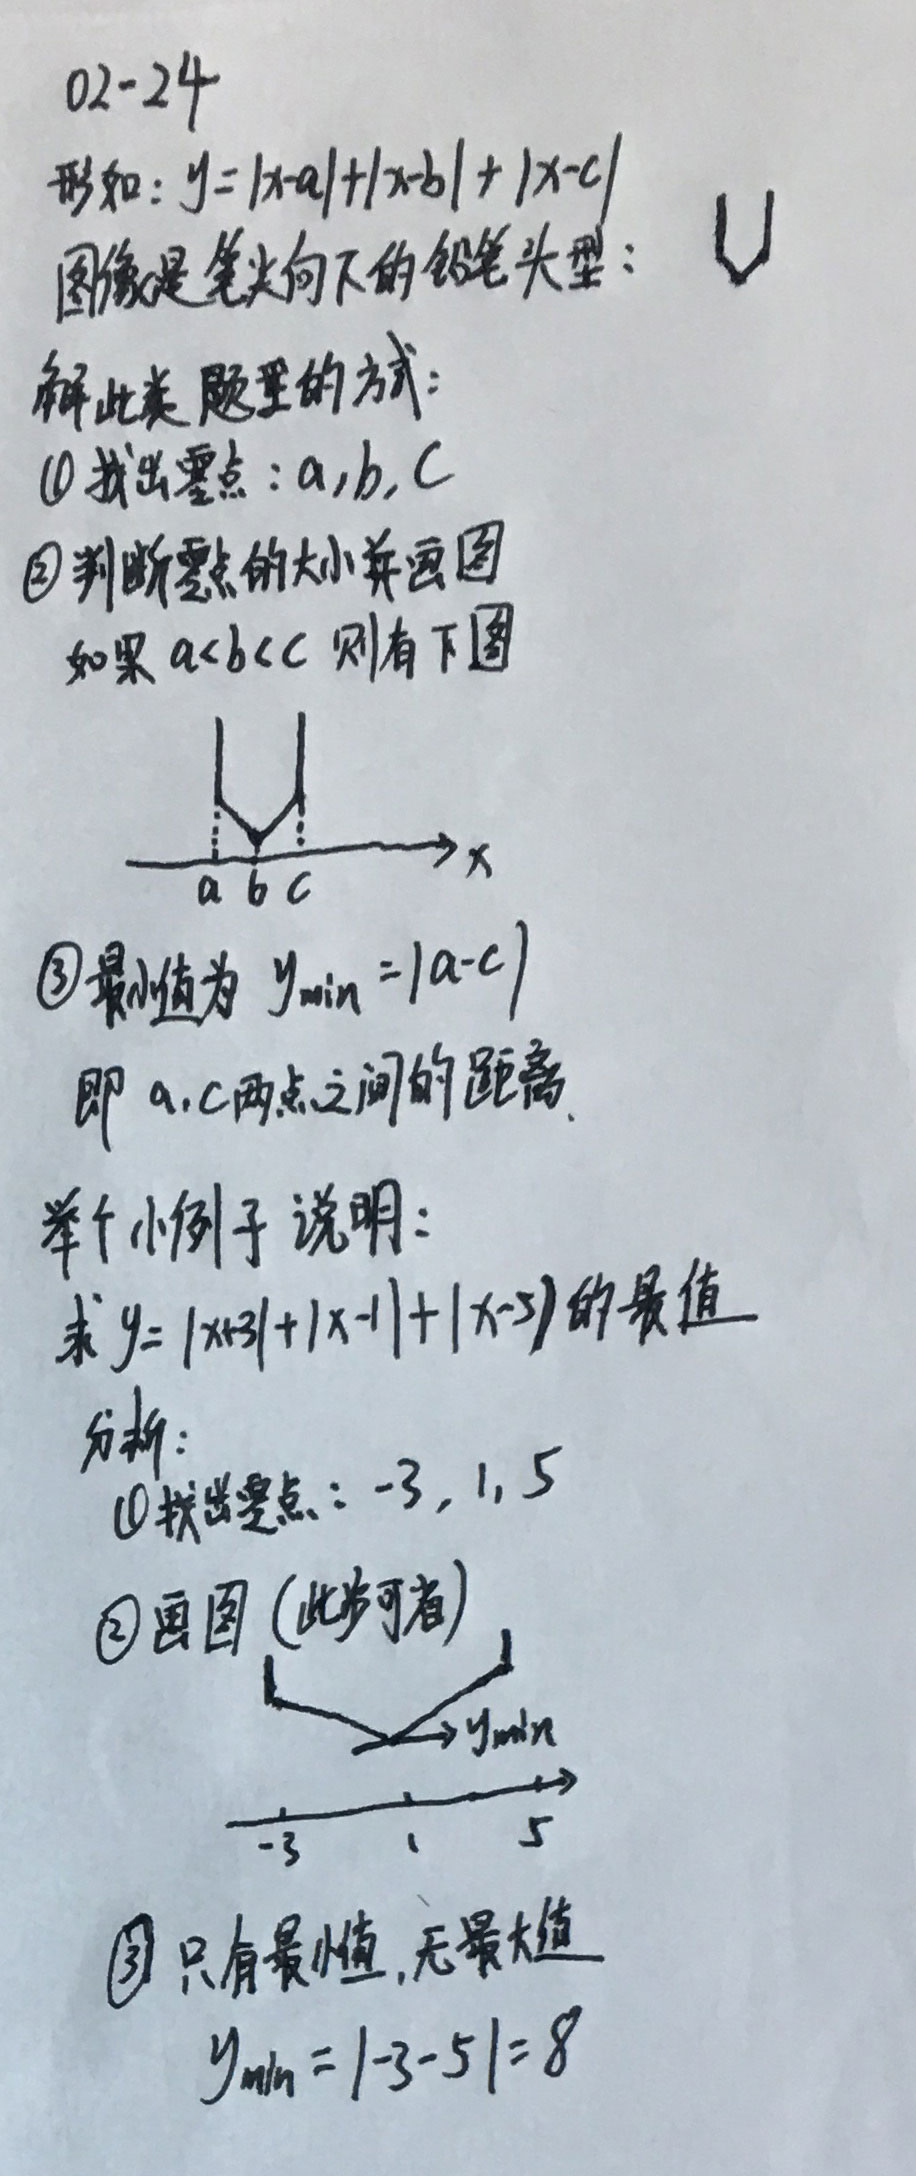 02-24
形如：y=|x-a|+|x-b|+|x-c|
图像是笔尖向下的铅笔头型：
解此类题型的方式：
① 找出零点：a,b,c
② 判断零点的大小并画图
如果 a<b<c 则有下图
x
a b c
③ 最小值为 ymin=|a-c|
即 a.c两点之间的距离.
举个小例子说明：
求 y=|x+3|+|x-1|+|x-5|的最值
分析：
① 找出零点：-3, 1, 5
② 画图（此步可省）
ymin
-3 1 5
③ 只有最小值,无最大值
ymin=|-3-5|=8